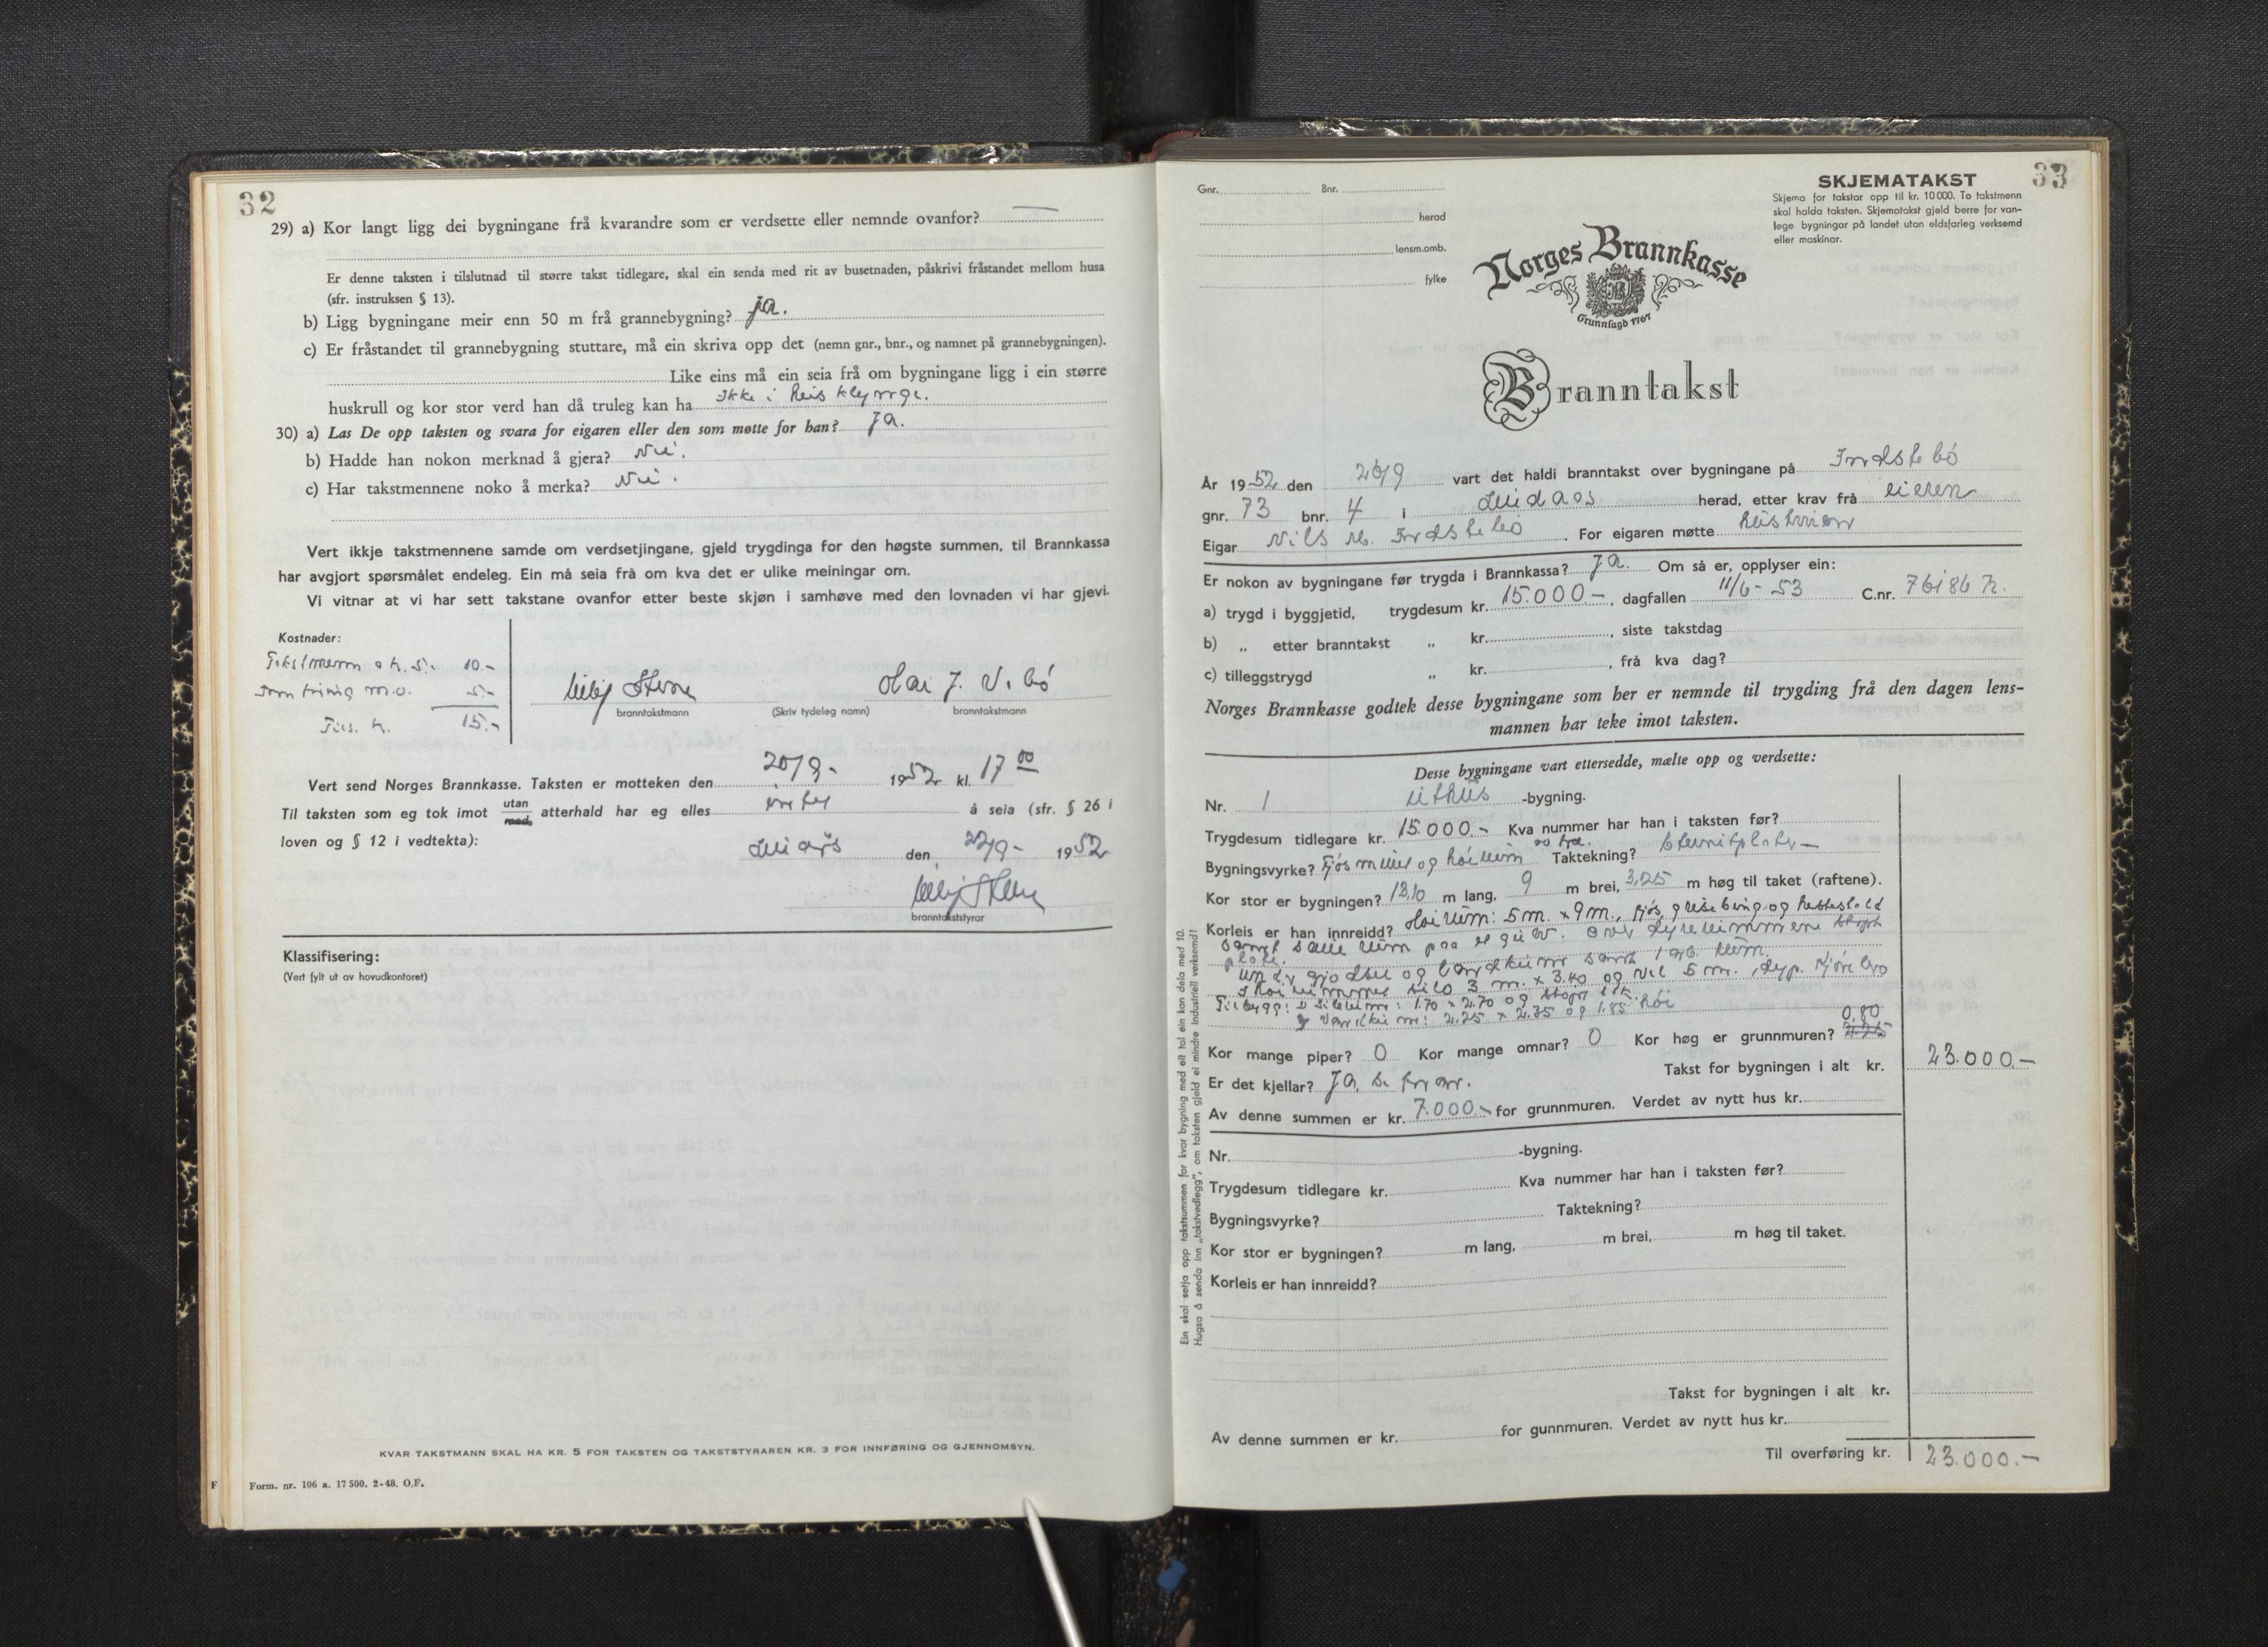 32
29) a) Kor langt ligg dei bygningane frå kvarandre som er verdsette eller nemnde ovanfor? —
Er denne taksten i tilslutnad til større takst tidlegare, skal ein senda med rit av busetnaden, påskrivi fråstandet mellom husa
(sfr. instruksen § 13).
b) Ligg bygningane meir enn 50 m frå grannebygning? ja.
c) Er fråstandet til grannebygning stuttare, må ein skriva opp det (nemn gnr., bnr., og namnet på grannebygningen).
Like eins må ein seia frå om bygningane ligg i ein større
huskrull og kor stor verd han då truleg kan ha Ikke i husklynge.
30) a) Las De opp taksten og svara for eigaren eller den som møtte for han? Ja.
b) Hadde han nokon merknad å gjera? Nei.
c) Har takstmennene noko å merka? Nei.
Vert ikkje takstmennene samde om verdsetjingane, gjeld trygdinga for den høgste summen, til Brannkassa
har avgjort spørsmålet endeleg. Ein må seia frå om kva det er ulike meiningar om.
Vi vitnar at vi har sett takstane ovanfor etter beste skjøn i samhøve med den lovnaden vi har gjevi.
Kostnader:
Takstmenn a kr. 5.- 10.-
5.-
kr. 15.-
branntakstmann (Skriv tydeleg namn) branntakstmann
Vert send Norges Brannkasse. Taksten er motteken den 20/9- 1952 kl. 17 00
Til taksten som eg tok imot utan med atterhald har eg elles intet å seia (sfr. § 26 i
loven og § 12 i vedtekta):
den 1952
branntakststyrar
Klassifisering:
(Vert fylt ut av hovudkontoret)
KVAR TAKSTMANN SKAL HA KR. 5 FOR TAKSTEN OG TAKSTSTYRAREN KR. 3 FOR INNFØRING OG GJENNOMSYN.
F Form. nr. 106 a. 17 500. 2-48. O.F.
33
SKJEMATAKST
Skjema for takstar opp til kr. 10 000. To takstmenn
skal halda taksten. Skjematakst gjeld berre for van-
lege bygningar på landet utan eldsfarleg verksemd
eller maskinar.
Gnr. Bnr.
herad
lensm.omb.
fylke
Norges Brannkasse
Grunnlagd 1767
Branntakst
År 1952 den 20/9 vart det haldi branntakst over bygningane på Indstebö
gnr. 73 bnr. 4 i Lindaas herad, etter krav frå eieren
Eigar Nils M. Indstebö. For eigaren møtte hustruen
Er nokon av bygningane før trygda i Brannkassa? Ja. Om så er, opplyser ein:
a) trygd i byggjetid, trygdesum kr. 15.000.-, dagfallen 11/6-53 C.nr. 76186
b) „ etter branntakst „ kr. , siste takstdag
c) tilleggstrygd „ kr. , frå kva dag?
Norges Brannkasse godtek desse bygningane som her er nemnde til trygding frå den dagen lens-
mannen har teke imot taksten.
Desse bygningane vart ettersedde, mælte opp og verdsette:
Nr. 1 Uthus -bygning.
Trygdesum tidlegare kr. 15.000.- Kva nummer har han i taksten før?
Bygningsvyrke? Fjös mur og höirum av tre. Taktekning? Eternitplater
Kor stor er bygningen? 13,10 m lang, 9 m brei, 3,25 m høg til taket (raftene).
Korleis er han innreidd? Höirum: 5 m. x 9 m., fjös, grisebing og hestestald
plate.
silo 3 m. x 3.40 og 5 m.
1.70 x 2.70 og
2.25 x 2.35 og 1.85 höi
Kor mange piper? 0 Kor mange omnar? 0 Kor høg er grunnmuren? 0.80
Er det kjellar? Ja, se foran. Takst for bygningen i alt kr. 23.000.-
Av denne summen er kr. 7.000.- for grunnmuren. Verdet av nytt hus kr.
Nr. -bygning.
Trygdesum tidlegare kr. Kva nummer har han i taksten før?
Bygningsvyrke? Taktekning?
Kor stor er bygningen? m lang, m brei, m høg til taket.
Korleis er han innreidd?
Takst for bygningen i alt kr.
Av denne summen er kr. for gunnmuren. Verdet av nytt hus kr.
Til overføring kr. 23.000.-
Ein skal setja opp takstsummen for kvar bygning med eit tal ein kan dela med 10.
Hugsa å senda inn „takstvedlegg", om taksten gjeld ei mindre industriell verksemd!